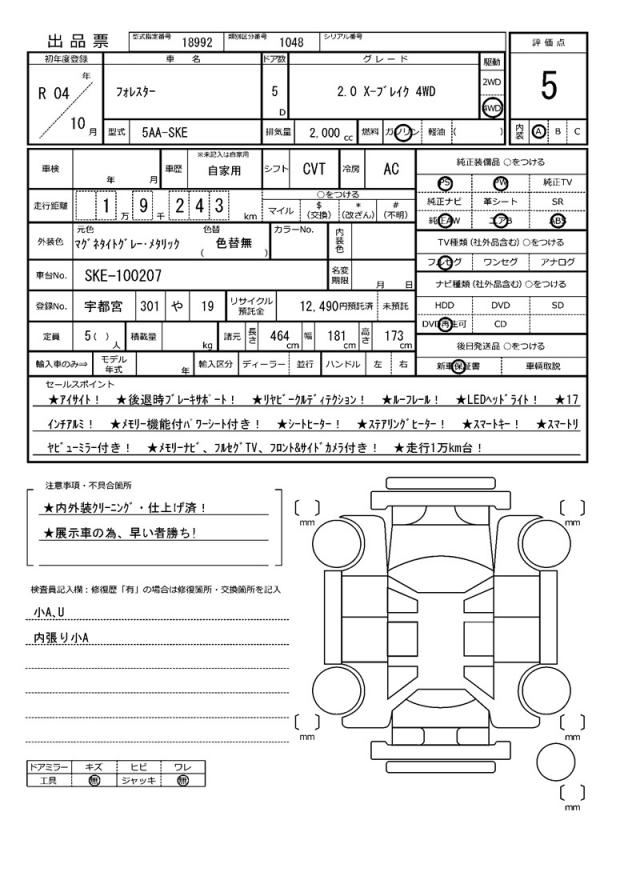 出品票 型式指定番号 18992 類別区分番号 1048 シリアル番号
評価点
5
内装 A B C
初年度登録 車名 ドア数 グレード 駆動
R 04 年 10 月 フォレスター 5 D 2.0 X-ブレイク 4WD 2WD 4WD
型式 5AA-SKE 排気量 2,000 cc 燃料 ガソリン 軽油 ( )
車検 年 月 車歴 ※未記入は自家用 自家用 シフト CVT 冷房 AC
走行距離 1 万 9 千 2 4 3 km ○をつける
マイル $ (交換) * (改ざん) # (不明)
外装色 元色 マグネタイトグレー・メタリック 色替 ( 色替無 ) カラーNo. 内装色
車台No. SKE-100207 名変期限 月 日
登録No. 宇都宮 301 や 19 リサイクル預託金 12,490円預託済 未預託
定員 5( ) 人 積載量 kg 諸元 長さ 464 cm 幅 181 cm 高さ 173 cm
輸入車のみ⇒ モデル年式 年 輸入区分 ディーラー 並行 ハンドル 左 右
純正装備品 ○をつける
PS PW 純正TV
純正ナビ 革シート SR
純正AW エアB ABS
TV種類 (社外品含む) ○をつける
フルセグ ワンセグ アナログ
ナビ種類 (社外品含む) ○をつける
HDD DVD SD
DVD再生可 CD
後日発送品 ○をつける
新車保証書 車輌取説
セールスポイント
★アイサイト! ★後退時ブレーキサポート! ★リヤビークルディテクション! ★ルーフレール! ★LEDヘッドライト! ★17
インチアルミ! ★メモリー機能付パワーシート付き! ★シートヒーター! ★ステアリングヒーター! ★スマートキー! ★スマートリ
ヤビューミラー付き! ★メモリーナビ、フルセグTV、フロント&サイドカメラ付き! ★走行1万km台!
注意事項・不具合箇所
★内外装クリーニング・仕上げ済!
★展示車の為、早い者勝ち!
検査員記入欄:修復歴「有」の場合は修復箇所・交換箇所を記入
小A、U
内張り小A
ドアミラー キズ ヒビ ワレ
工具 無 ジャッキ 無
mm
mm
mm
mm
mm